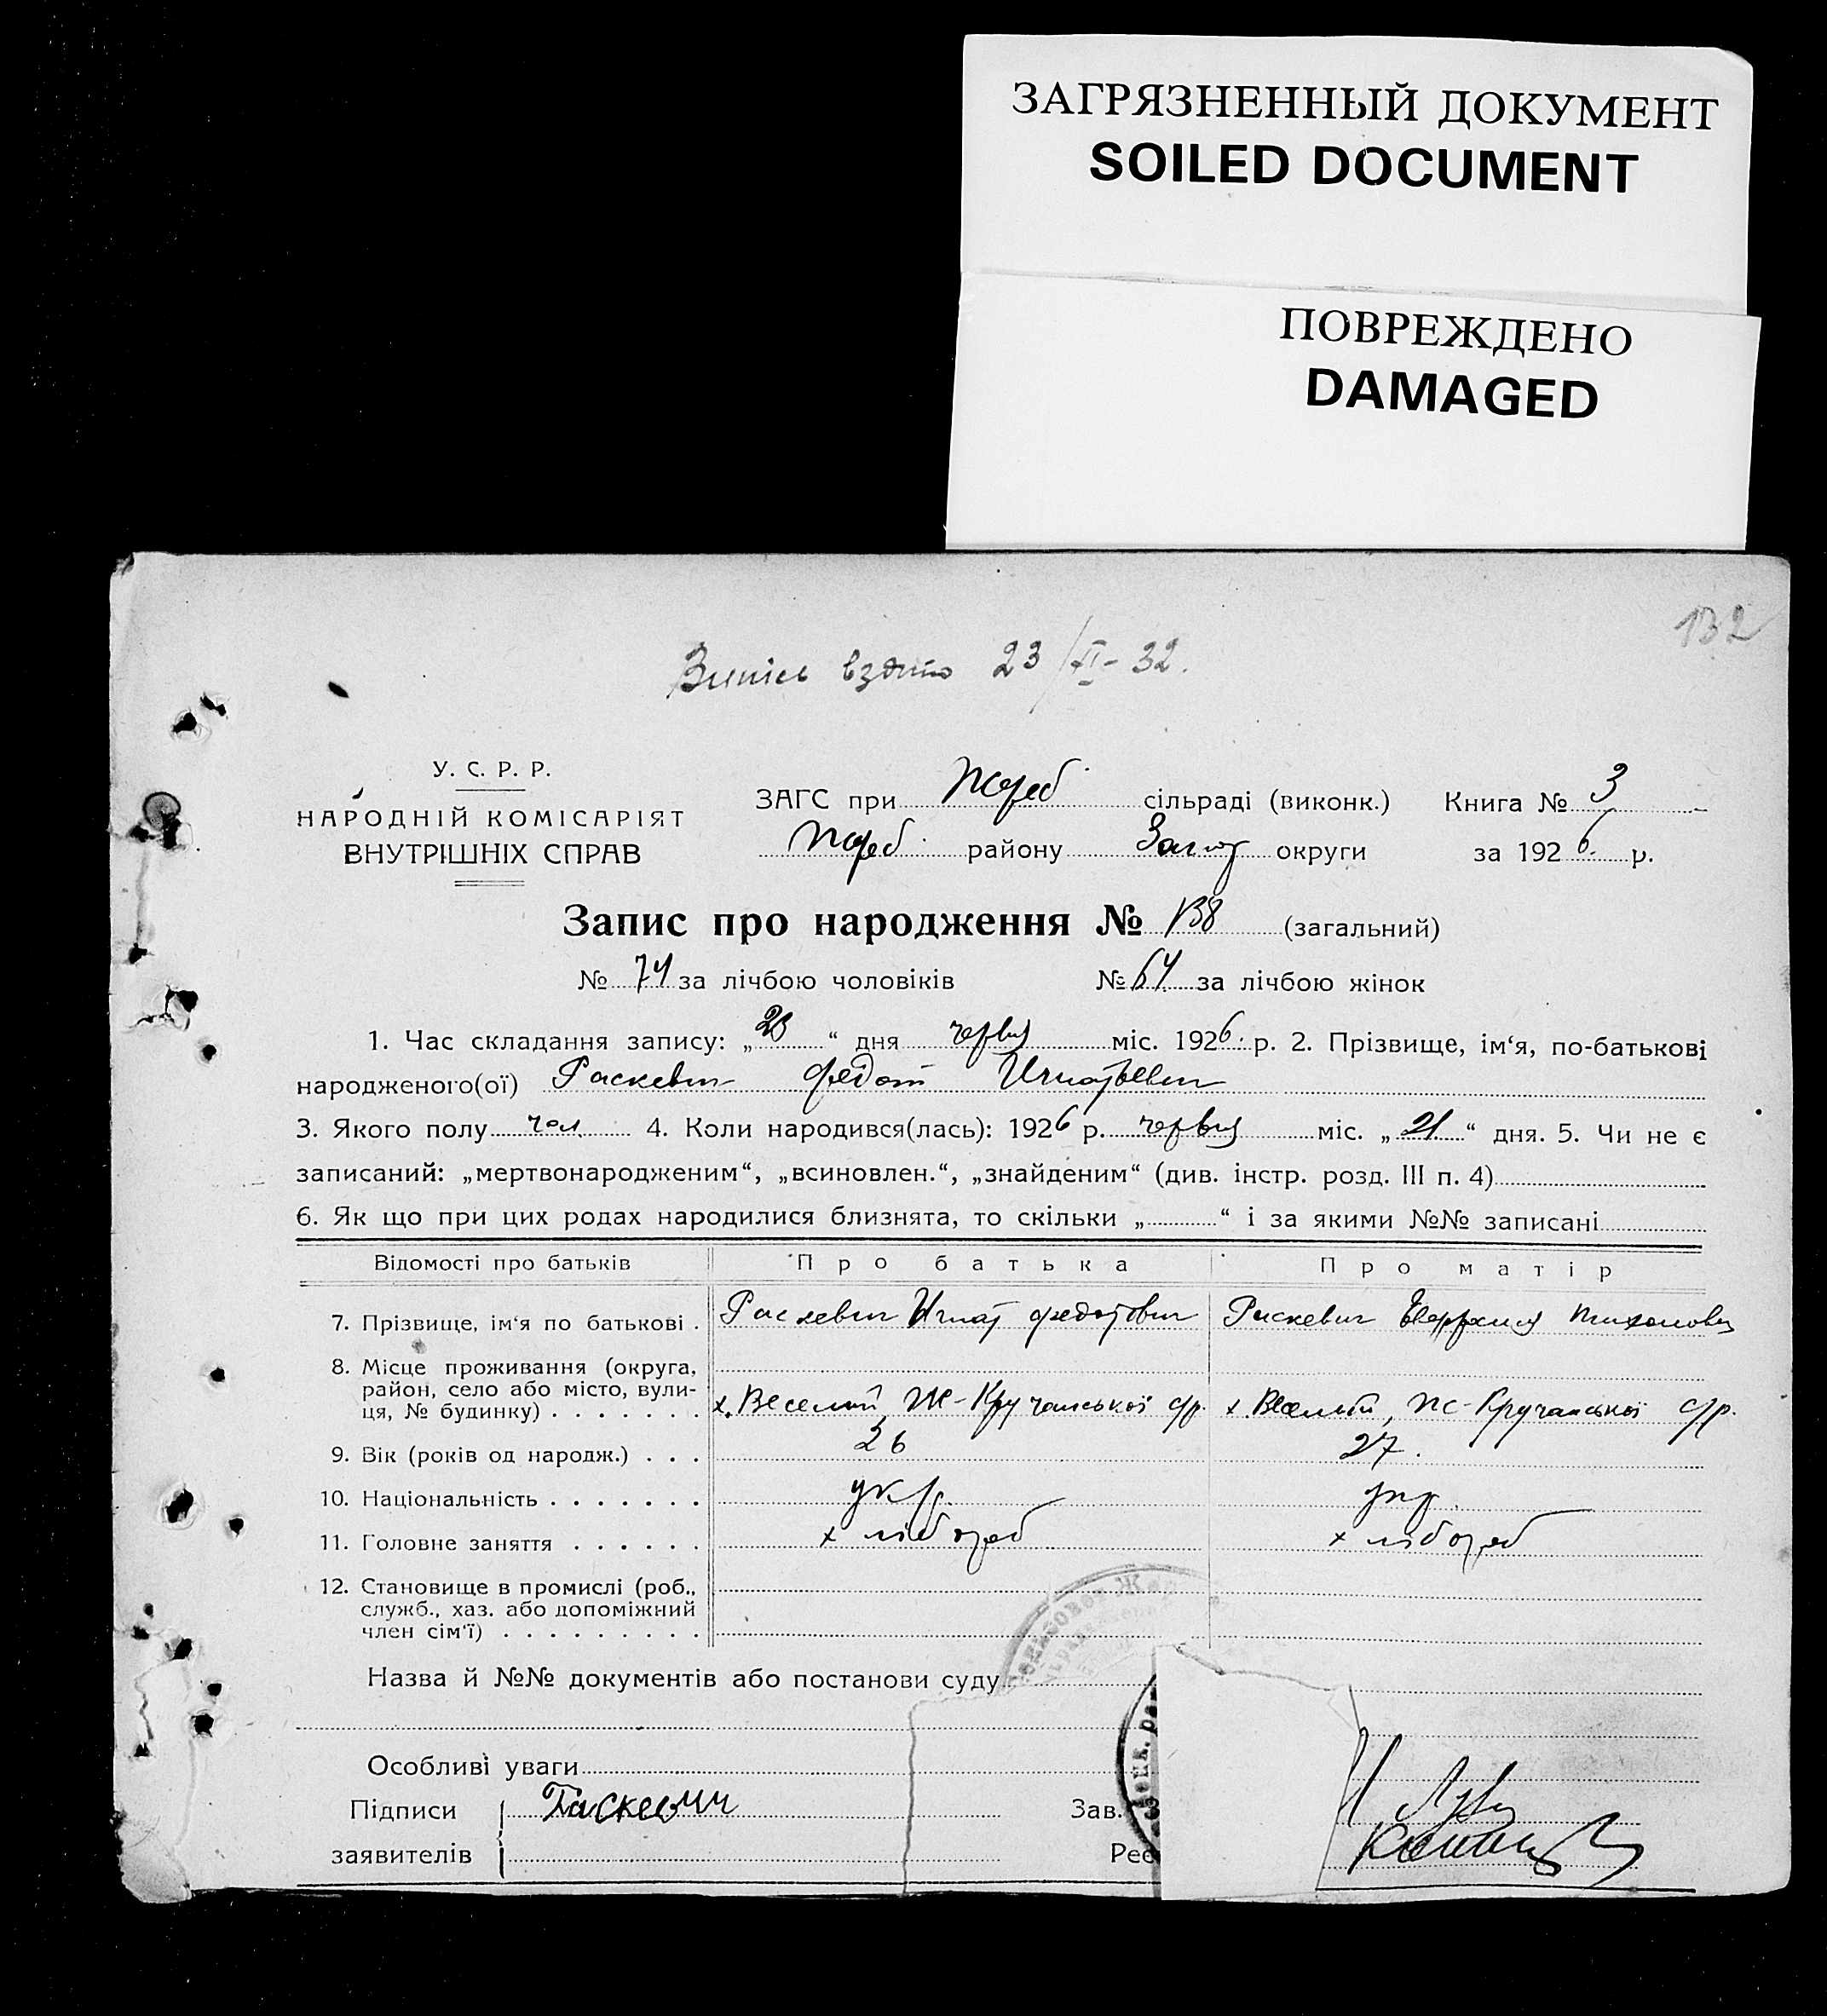 ЗАГРЯЗНЕННЫЙ ДОКУМЕНТ
SOILED DOCUMENT
ПОВРЕЖДЕНО
DAMAGED
132
23/XI-32.
У. С. Р. Р.
НАРОДНІЙ КОМІСАРІЯТ
ВНУТРІШНІХ СПРАВ
ЗАГС при Жереб. сільраді (виконк.) Книга № 3
Жереб. району Запор округи за 1926 р.
Запис про народження № 138 (загальний)
№ 74 за лічбою чоловіків № 64 за лічбою жінок
1. Час складання запису: „ “ дня червня міс. 1926 р. 2. Прізвище, ім‘я, по-батькові
народженого(ої) Раскевич Федот Игнатьевич
3. Якого полу чол. 4. Коли народився(лась): 1926 р. червня міс. „21“ дня. 5. Чи не є
записаний: „мертвонародженим“, „всиновлен.“, „знайденим“ (див. інстр. розд. III п. 4)
6. Як що при цих родах народилися близнята, то скільки „ “ і за якими №№ записані
Відомості про батьків Про батька Про матір
7. Прізвище, ім‘я по батькові . Раскевич Игнат Федотович Раскевич Тихоновна
8. Місце проживання (округа,
район, село або місто, вули-
ця, № будинку) . . . . . . . х. Веселий, Ж-Кручанської с/р. х. Веселий, Ж-Кручанської с/р.
9. Вік (років од народж.) . . . 26 27.
10. Національність . . . . . . . укр. укр.
11. Головне заняття . . . . . . хлібороб хлібороб
12. Становище в промислі (роб.,
служб., хаз. або допоміжний
член сім‘ї) . . . . . . . . .
Назва й №№ документів або постанови суду
Особливі уваги
Підписи Раскевич Зав.
заявителів Реє